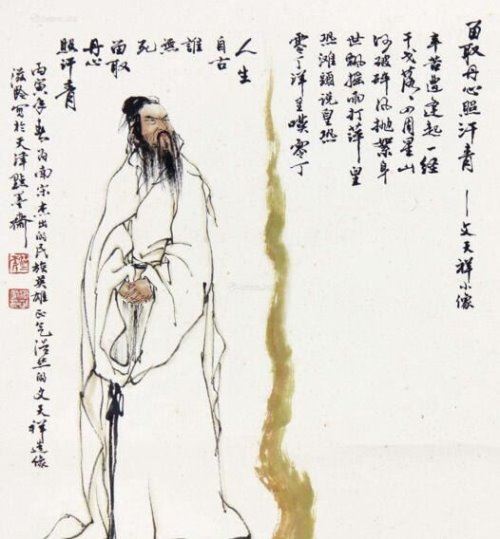 留取丹心照汗青 — 文天祥小像
辛苦遭逢起一经
干戈落々四周星山
河破碎风抛絮身
世飘摇雨打萍皇
恐滩头说皇恐
零丁洋里嘆零丁
人生
自古
誰
無
死
留取
丹心
照汗青
丙寅年春为南宋杰出的民族英雄正气浩然的文天祥造像
滋龄写於天津點墨齋